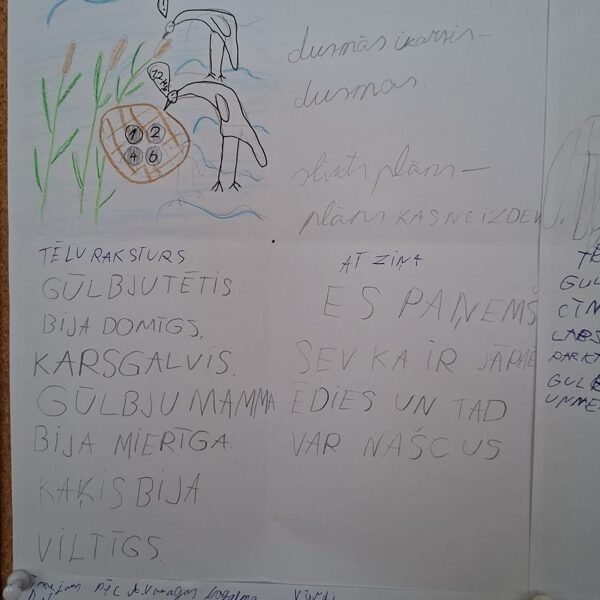 12
1 2
4 6
dusmās
dusmas.
slikts plāns –
plāns KAS NEIZDEV
TĒLU RAKSTURS
GŪLBJU TĒTIS
BIJA DOMĪGS,
KARSGALVIS.
GŪLBJU MAMMA
BIJA MIERĪGA.
KAĶIS BIJA
VILTĪGS.
ATZIŅA
ES PAŅEMŠ
SEV KA IR JĀPAE
ĒDIES UN TAD
VAR NAŠCUS
GUL
CĪN
LABS
DARĪT
GULB
UNME